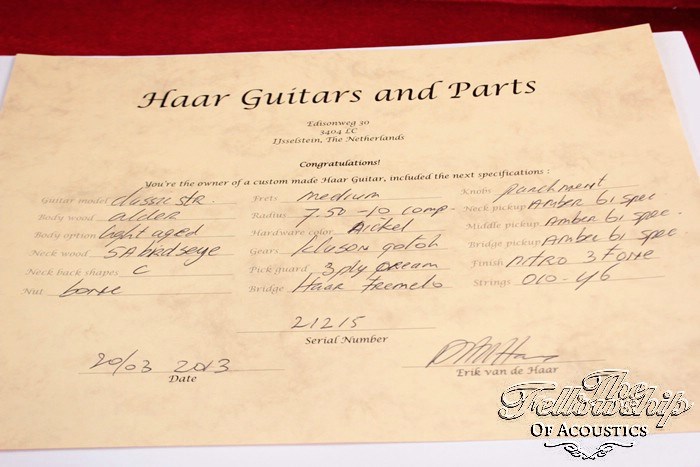 Haar Guitars and Parts
Edisonweg 30
3404 LC
IJsselstein, The Netherlands
Congratulations!
You're the owner of a custom made Haar Guitar, included the next specifications :
Guitar model classic str. Frets medium Knobs parchment
Body wood alder Radius 7.50-10 comp. Neck pickup Amber 61 spec
Body option light aged Hardware color Nickel Middle pickup Amber 61 spec.
Neck wood 5A birdseye Gears kluson gotoh Bridge pickup Amber 61 spec.
Neck back shapes C Pick guard 3ply cream Finish nitro 3 tone
Nut bone Bridge Haar tremelo Strings 010-46
21215
Serial Number
20/03 2013
Date
Erik van de Haar
The
Fellowship
Of Acoustics